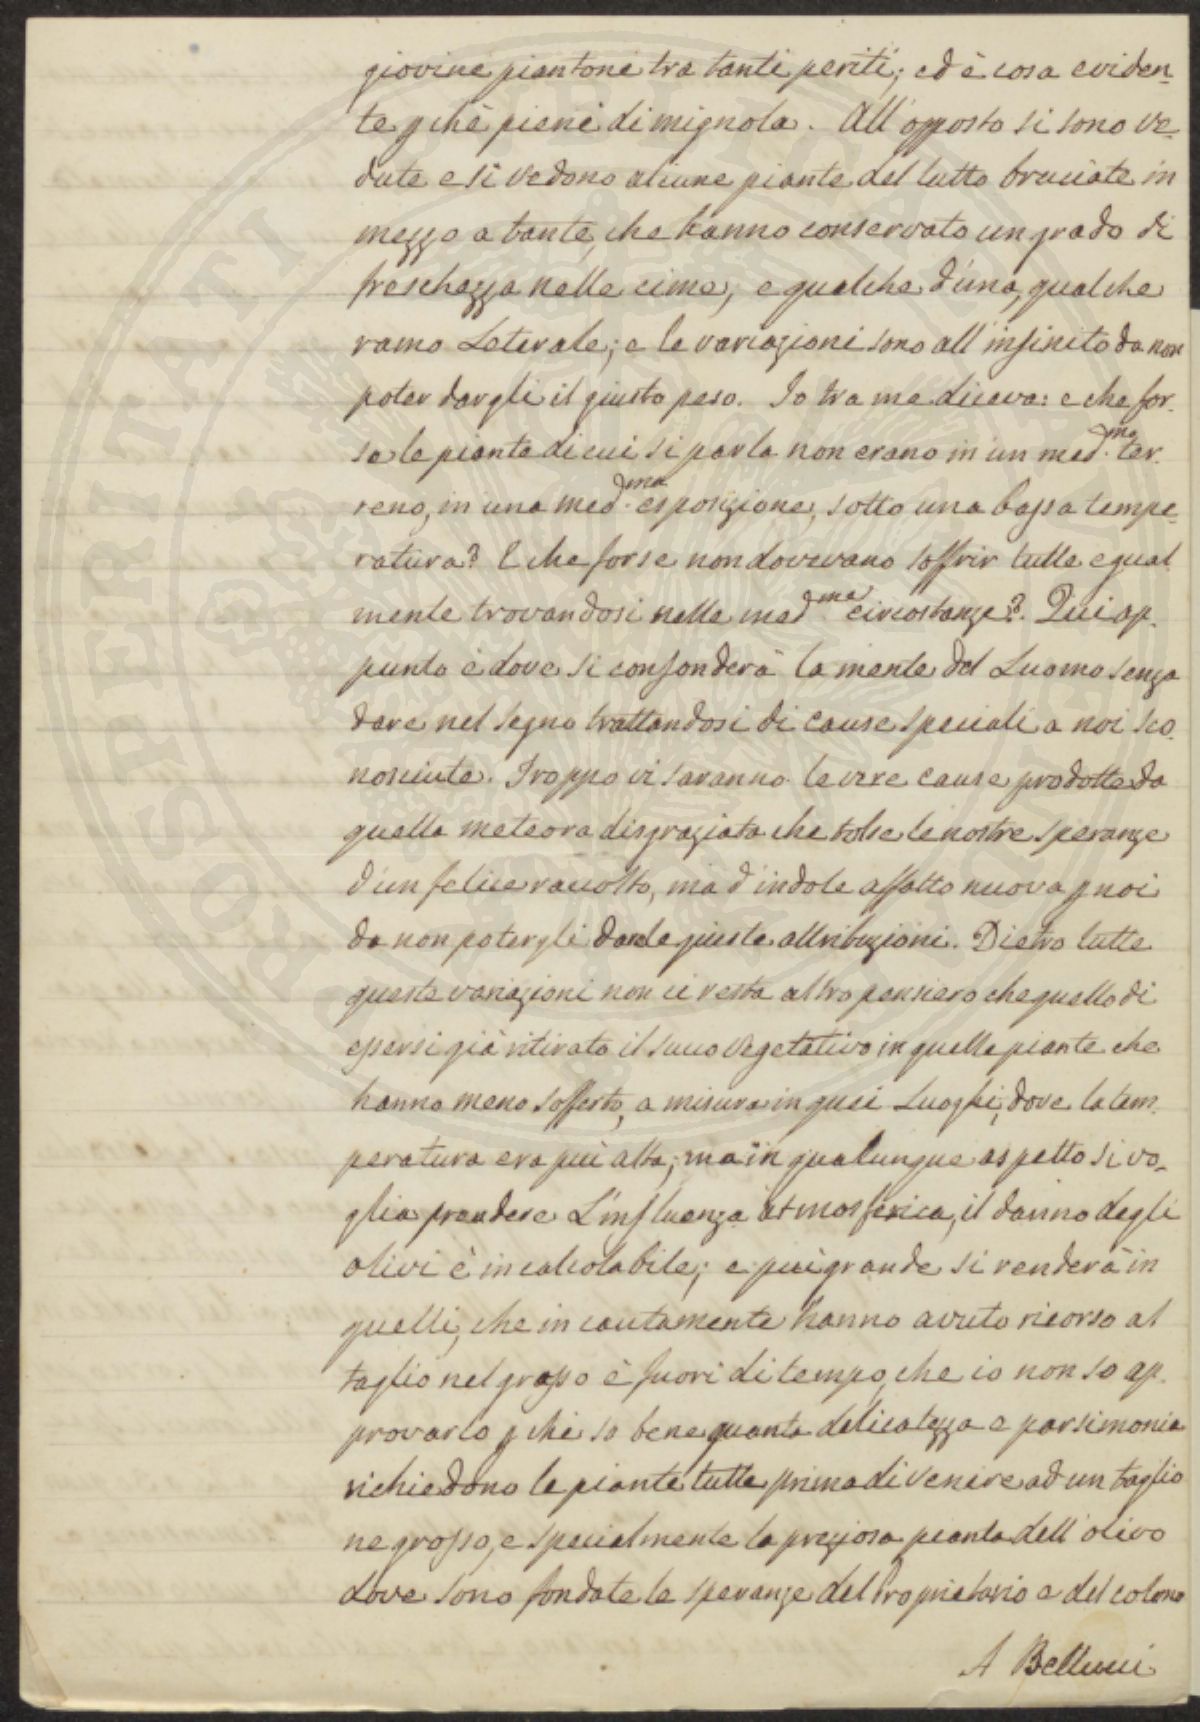 giovine piantone tra tanti periti; ed è cosa eviden-
te pchè piene di mignola. All'opposto si sono ve-
dute e si vedono alcune piante del tutto bruciate in
mezzo a tante, che hanno conservato un grado di
freschezza nelle cime, e qualche d'una, qualche
ramo Leterale; e le variazioni sono all'infinito da non
poter dargli il giusto peso. Io tra me diceva: e che for-
se le piante di cui si parla non erano in un med.mo ter-
reno, in una med.ma esposizione, sotto una bassa tempe-
ratura? E che forse non dovevano soffrir tutte egual-
mente trovandosi nelle med.me circostanze? Qui ap-
punto è dove si confonderà la mente del Luomo senza
dare nel segno trattandosi di cause speciali a noi sco-
nosciute. Troppo vi saranno le vere cause prodotte da
quella meteora disgraziata che tolse le nostre speranze
d'un felice raccolto, ma d'indole affatto nuova p noi
da non potergli dare le giuste attribuzioni. Dietro tutte
queste variazioni non ci resta altro pensiero che quello di
essersi già ritirato il succo vegetativo in quelle piante che
hanno meno sofferto, a misura in quei Luoghi, dove la tem-
peratura era più alta; ma in qualunque aspetto si vo-
glia prendere L'influenza atmosferica, il danno degli
olivi è incalcolabile; e più grande si renderà in
quelli, che incautamente hanno avuto ricorso al
taglio nel grosso è fuori di tempo, che io non so ap-
provarlo pchè so bene quanta delicatezza e parsimonia
richiedono le piante tutte prima di venire ad un taglio
ne grosso, e specialmente la preziosa pianta dell'olivo
dove sono fondate le speranze del Proprietario e del colono
A Bellucci
PROSPERITATI PUBLICAE AUGENDAE